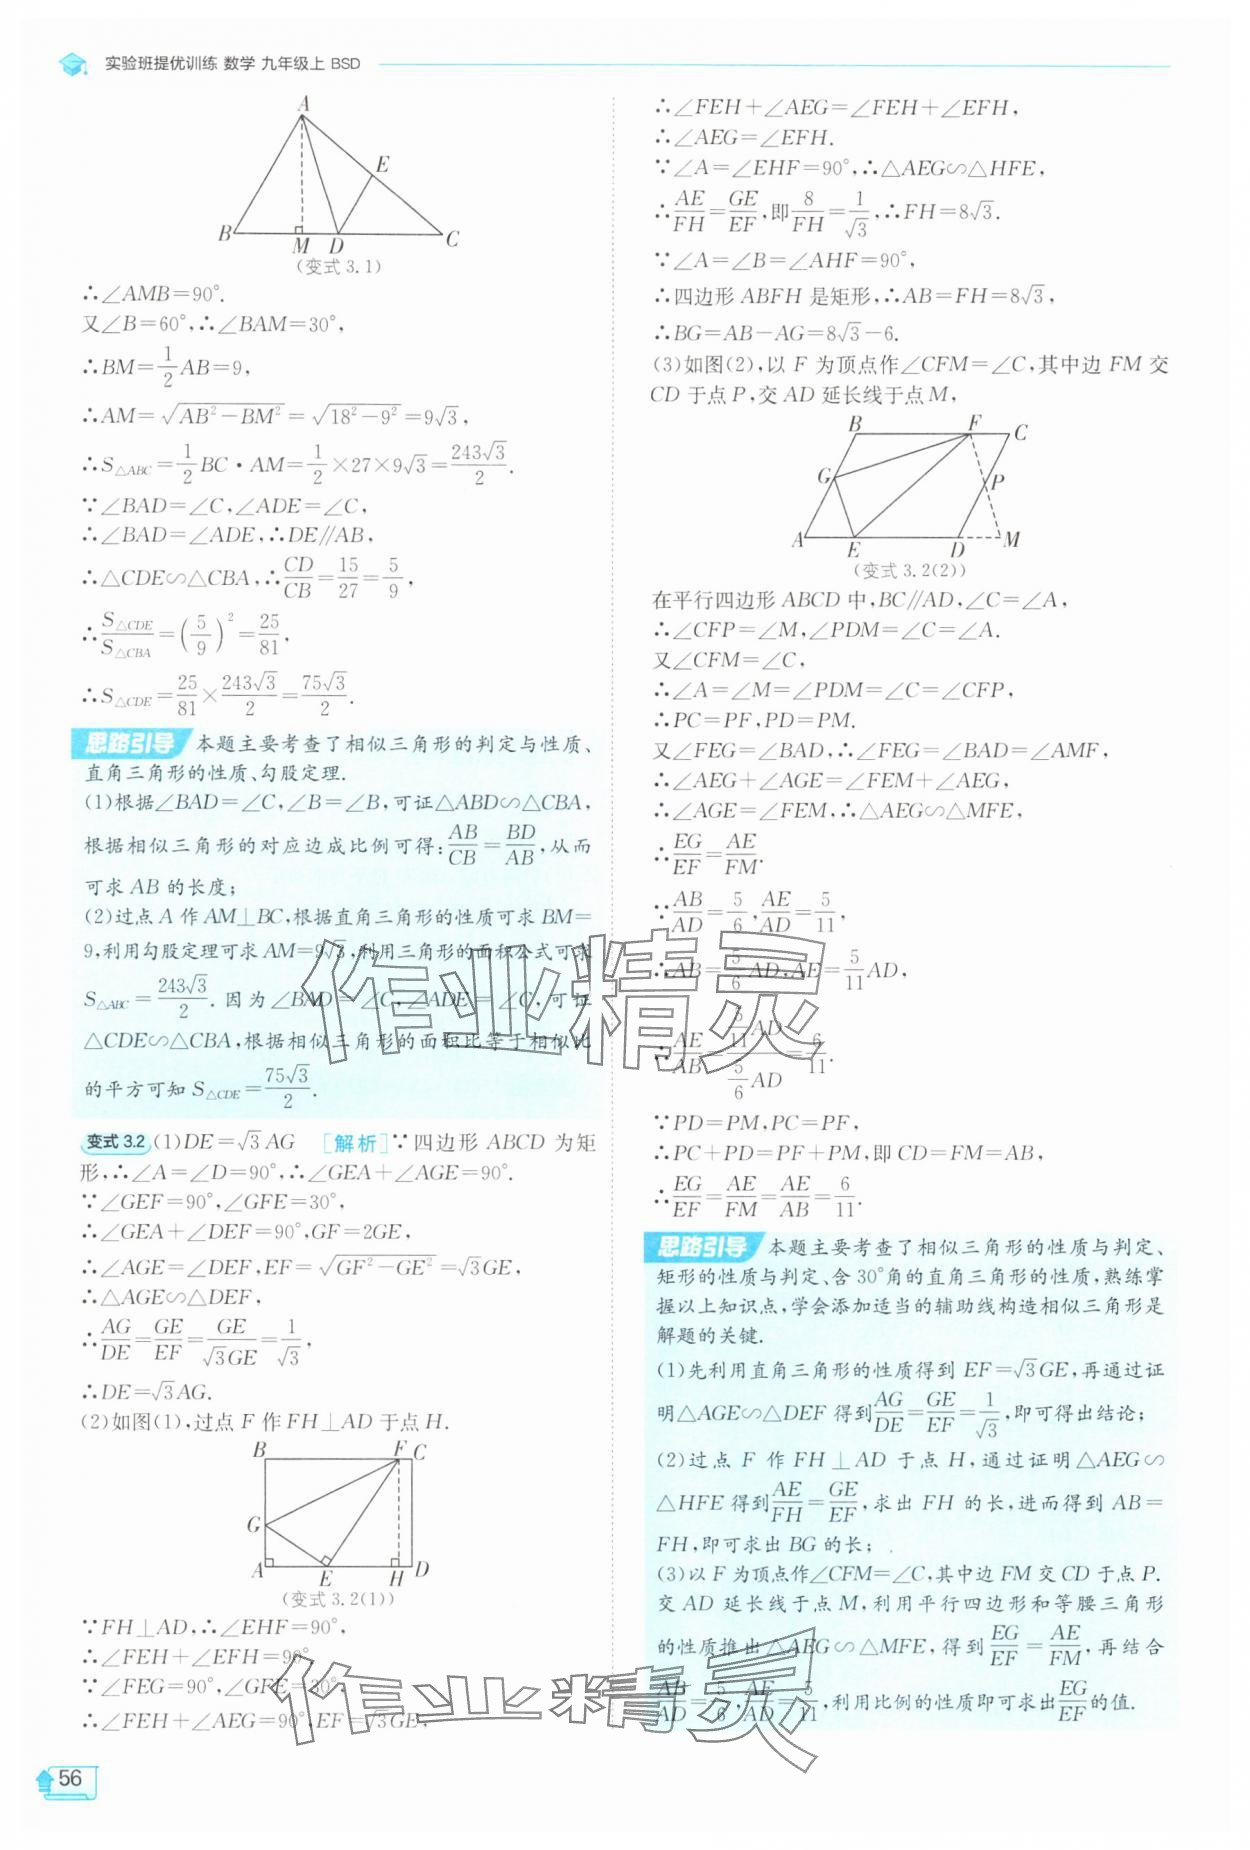 实验班提优训练 数学 九年级上 BSD
A
E
B M D C
(变式3.1)
∴∠AMB=90°.
又∠B=60°,∴∠BAM=30°,
∴BM=1/2AB=9,
∴AM=√(AB²-BM²)=√(18²-9²)=9√3,
∴S△ABC=1/2BC·AM=1/2×27×9√3=243√3/2.
∵∠BAD=∠C,∠ADE=∠C,
∴∠BAD=∠ADE,∴DE∥AB,
∴△CDE∽△CBA,∴CD/CB=15/27=5/9,
∴S△CDE/S△CBA=(5/9)²=25/81,
∴S△CDE=25/81×243√3/2=75√3/2.
思路引导 本题主要考查了相似三角形的判定与性质、
直角三角形的性质、勾股定理.
(1)根据∠BAD=∠C,∠B=∠B,可证△ABD∽△CBA,
根据相似三角形的对应边成比例可得:AB/CB=BD/AB,从而
可求AB的长度;
(2)过点A作AM⊥BC,根据直角三角形的性质可求BM=
9,利用勾股定理可求AM=9√3,利用三角形的面积公式可求
S△ABC=243√3/2.因为∠BAD=∠C,∠ADE=∠C,可证
△CDE∽△CBA,根据相似三角形的面积比等于相似比
的平方可知S△CDE=75√3/2.
变式3.2 (1)DE=√3AG [解析]∵四边形ABCD为矩
形,∴∠A=∠D=90°,∴∠GEA+∠AGE=90°.
∵∠GEF=90°,∠GFE=30°,
∴∠GEA+∠DEF=90°,GF=2GE,
∴∠AGE=∠DEF,EF=√(GF²-GE²)=√3GE,
∴△AGE∽△DEF,
∴AG/DE=GE/EF=GE/√3GE=1/√3,
∴DE=√3AG.
(2)如图(1),过点F作FH⊥AD于点H.
B F C
G
A E H D
(变式3.2(1))
∵FH⊥AD,∴∠EHF=90°,
∴∠FEH+∠EFH=90°
∵∠FEG=90°,∠GFE=30°,
∴∠FEH+∠AEG=90°,EF=√3GE,
∴∠FEH+∠AEG=∠FEH+∠EFH,
∴∠AEG=∠EFH.
∵∠A=∠EHF=90°,∴△AEG∽△HFE,
∴AE/FH=GE/EF,即8/FH=1/√3,∴FH=8√3.
∵∠A=∠B=∠AHF=90°,
∴四边形ABFH是矩形,∴AB=FH=8√3,
∴BG=AB-AG=8√3-6.
(3)如图(2),以F为顶点作∠CFM=∠C,其中边FM交
CD于点P,交AD延长线于点M,
B F C
G P
A E D M
(变式3.2(2))
在平行四边形ABCD中,BC∥AD,∠C=∠A,
∴∠CFP=∠M,∠PDM=∠C=∠A.
又∠CFM=∠C,
∴∠A=∠M=∠PDM=∠C=∠CFP,
∴PC=PF,PD=PM.
又∠FEG=∠BAD,∴∠FEG=∠BAD=∠AMF,
∴∠AEG+∠AGE=∠FEM+∠AEG,
∴∠AGE=∠FEM,∴△AEG∽△MFE,
∴EG/EF=AE/FM.
∵AB/AD=5/6,AE/AD=5/11,
∴AB=5/6AD,AE=5/11AD,
∴AE/AB=(5/11AD)/(5/6AD)=6/11.
∵PD=PM,PC=PF,
∴PC+PD=PF+PM,即CD=FM=AB,
∴EG/EF=AE/FM=AE/AB=6/11.
思路引导 本题主要考查了相似三角形的性质与判定、
矩形的性质与判定、含30°角的直角三角形的性质,熟练掌
握以上知识点,学会添加适当的辅助线构造相似三角形是
解题的关键.
(1)先利用直角三角形的性质得到EF=√3GE,再通过证
明△AGE∽△DEF得到AG/DE=GE/EF=1/√3,即可得出结论;
(2)过点F作FH⊥AD于点H,通过证明△AEG∽
△HFE得到AE/FH=GE/EF,求出FH的长,进而得到AB=
FH,即可求出BG的长;
(3)以F为顶点作∠CFM=∠C,其中边FM交CD于点P.
交AD延长线于点M,利用平行四边形和等腰三角形
的性质推出△AEG∽△MFE,得到EG/EF=AE/FM,再结合
AB/AD=5/6,AE/AD=5/11,利用比例的性质即可求出EG/EF的值.
作业精灵
作业精灵
56